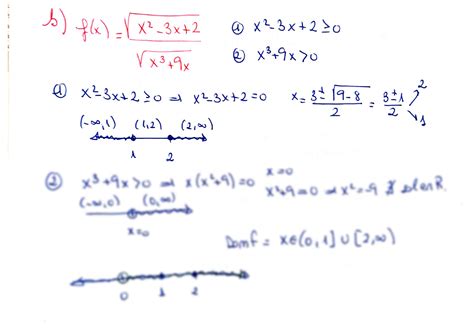 b) f(x) = √(x²-3x+2) / √(x³+9x)
① x²-3x+2 ≥ 0
② x³+9x > 0
① x²-3x+2 ≥ 0 ⇒ x²-3x+2 = 0 x = (3±√(9-8))/2 = (3±1)/2 ↗ 2 ↘ 1
(-∞,1) (1,2) (2,∞)
1 2
② x³+9x > 0 ⇒ x(x²+9) = 0 x=0
x²+9=0 ⇒ x²=-9 ∄ sol en R.
(-∞,0) (0,∞)
x=0
Dom f = x∈(0,1] ∪ [2,∞)
0 1 2